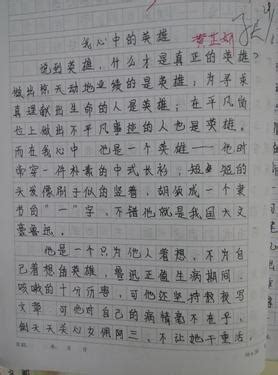 我心中的英雄
说到英雄，什么才是真正的英雄？
做出惊天动地业绩的是英雄；为寻求
真理献出生命的人是英雄；在平凡岗
位上做出不平凡事迹的人也是英雄。
而在我心中，他是一个英雄——他时
常穿一件朴素的中式长衫，短短的
头发像刷子似的竖着，胡须成一个隶
书的"一"字，不错他就是我国大文
豪鲁迅。
他是一个只为他人着想，不为自
己着想的英雄，鲁迅正值生病期间，
咳嗽的十分厉害，可他还坚持教我写
文章，可他对自己的病情毫不在乎，
倒天天关心女佣阿三，不让她干重活，